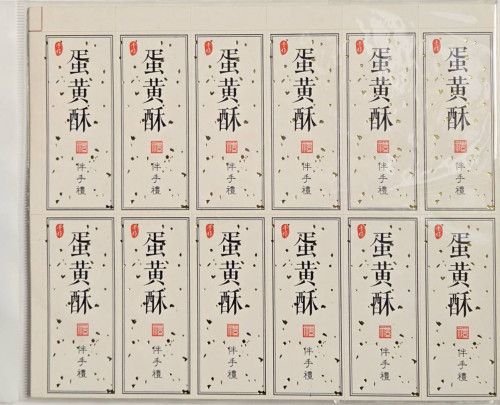 蛋黄酥
伴手禮
蛋黄酥
伴手禮
蛋黄酥
伴手禮
蛋黄酥
伴手禮
蛋黄酥
伴手禮
蛋黄酥
伴手禮
蛋黄酥
伴手禮
蛋黄酥
伴手禮
蛋黄酥
伴手禮
蛋黄酥
伴手禮
蛋黄酥
伴手禮
蛋黄酥
伴手禮